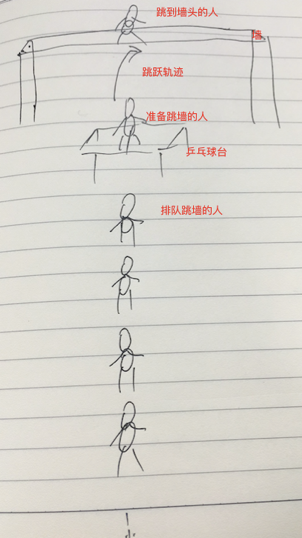 跳到墙头的人
墙
跳跃轨迹
准备跳墙的人
乒乓球台
排队跳墙的人